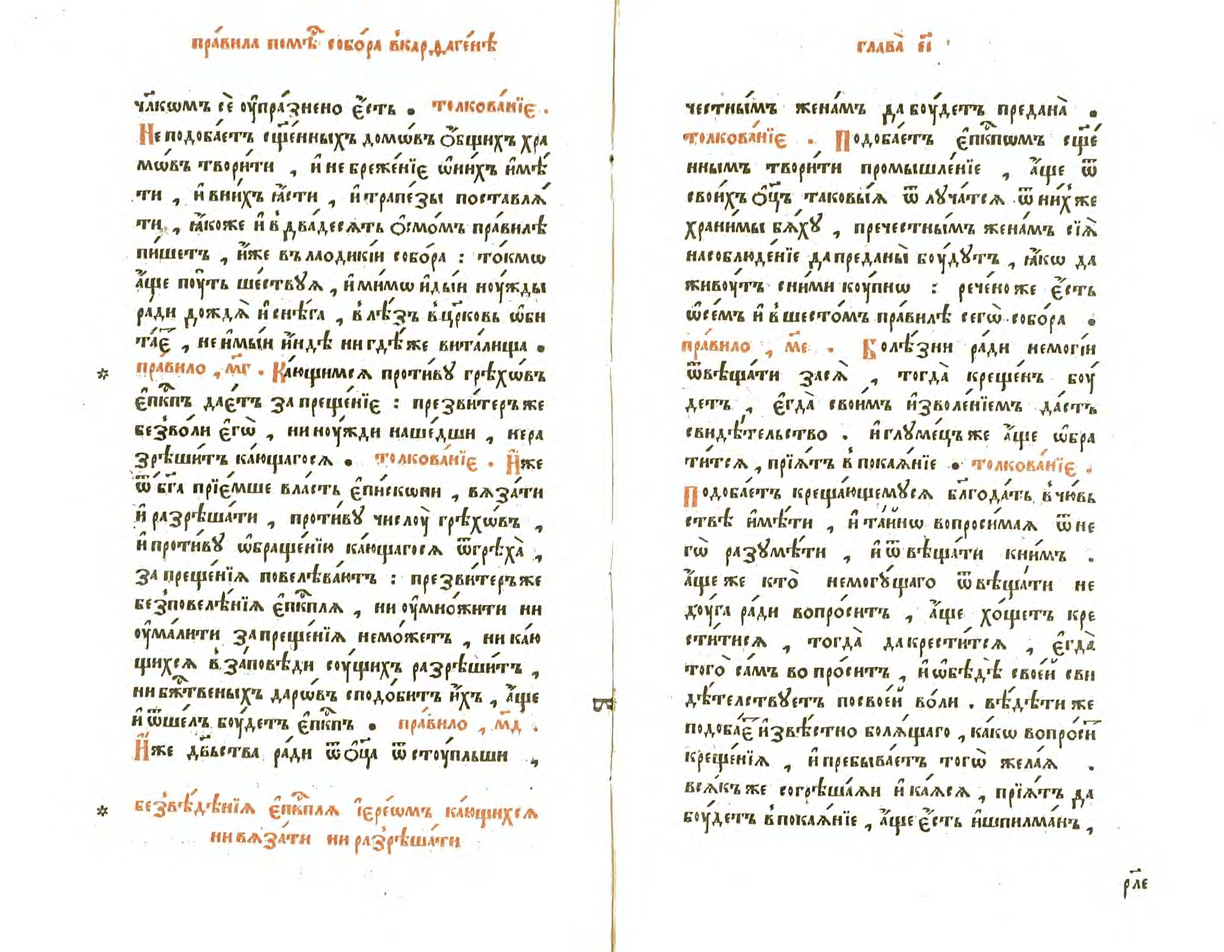 пра́вила помѣ́ст собо́ра вкарѳаге́нѣ
чл҃комъ сѐ ᲂу҆пра́знено є҆́сть . толкова́нїе .
Не подоба́етъ сщ҃е́нныхъ домо́въ ѻ҆́бщихъ хра
мѡ́въ твори́ти , и҆ не бреже́нїе ѡ҆ни́хъ и҆мѣ́
ти , и҆ вни́хъ ꙗ҆́сти , и҆ трапе́зы поставлѧ́
ти , ꙗ҆́коже и҆ в два́десѧть ѻ҆смо́мъ пра́вилѣ
пи́шетъ , и҆́же въ лаодикі́и собо́ра : то́кмѡ
а҆́ще пꙋ́ть ше́ствуѧ , и҆ми́мѡ и҆ды́и ноу́жды
ради дождѧ̀ и҆ сне́га , влѣ́зъ вцр҃ковь ѡ҆би
та́е , не и҆мы́и и҆́ндѣ ни гдѣ́же вита́лища .
пра́вило , м҃г . Ка́ющимсѧ проти́ву грѣхѡ́въ
є҆пⷭ҇кпъ дае́тъ запреще́нїе : презви́теръже
безво́ли є҆гѡ̀ , ни ноу́жди наше́дши , нера
зрѣши́тъ ка́ющагосѧ . толкова́нїе . И҆́же
ѿ бг҃а прїе́мше вла́сть є҆пи́скопи , вѧза́ти
и҆ разрѣша́ти , проти́ву числоу̀ грѣхѡ́въ ,
и҆ проти́ву ѡ҆браще́нїю ка́ющагосѧ ѿгрѣха̀ ,
запреще́нїѧ повелѣва́ютъ : презви́терьже
безповелѣ́нїѧ є҆пⷭ҇кплѧ , ни ᲂу҆мно́жити ни
ᲂу҆ма́лити запреще́нїѧ немо́жетъ , ни ка́ю
щихсѧ в за́повѣди соу́щихъ разрѣши́тъ ,
ни бж҃твеныхъ даро́въ сподо́битъ и҆́хъ , а҆́ще
и҆ ѿше́лъ боу́детъ є҆пⷭ҇кпъ . пра́вило , м҃д .
И҆́же дв҃ьства ра́ди ѿ ѻ҆ц҃а ѿстоу́пльши ,
* безвѣ́дѣнїѧ є҆пⷭ҇кплѧ і҆ере́ѡмъ ка́ющихсѧ
ни вѧза́ти ни разрѣша́ти
глава̀ є҃і
честны́мъ жена́мъ да боу́детъ предана̀ .
толкова́нїе . Подоба́етъ є҆пⷭ҇кпѡмъ сщ҃е́
ннымъ твори́ти промышле́нїе , а҆́ще ѿ
свои́хъ ѻ҆ц҃ъ таковы́ѧ ѿлуча́тсѧ ѿ ни́хже
храни́мы бѧ́ху , пречестны́мъ жена́мъ сїѧ̀
насоблюде́нїе да преданы̀ боу́дутъ , ꙗ҆́кѡ да
живоу́тъ сни́ми коу́пнѡ : рече́но же є҆́сть
ѡ҆се́мъ и҆ вшесто́мъ пра́вилѣ сегѡ̀ собо́ра .
пра́вило , м҃е . Боле́зни ра́ди немоги́и
ѿвѣща́ти засѧ̀ , тогда̀ креще́нъ боу́
детъ , є҆гда̀ свои́мъ и҆зволе́нїемъ да́стъ
свидѣ́тельство . и҆ глуме́цъ же а҆́ще ѡ҆бра
ти́тсѧ , прїѧ́тъ в покаѧ́нїе . толкова́нїе .
Подоба́етъ креща́ющемусѧ бл҃года́ть вчю́вь
ствѣ и҆мѣ́ти , и҆ та́йнѡ вопроси́маѧ ѿ не
гѡ̀ разумѣ́ти , и҆ ѿвѣща́ти кни́мъ .
а҆́ще же кто̀ немогу́щаго ѿвѣща́ти не
доу́га ра́ди вопро́ситъ , а҆́ще хо́щетъ кре
сти́тисѧ , тогда̀ да крести́тсѧ , є҆гда̀
того̀ са́мъ вопро́ситъ , и҆ ѡ҆бѣ́дѣ свое́й сви
дѣ́телствуетъ посвое́й во́ли . вѣ́дѣти же
подоба́е и҆звѣ́стно болѧ́щаго , ка́кѡ вопро́си
креще́нїѧ , и҆ пребыва́етъ тогѡ̀ жела́ѧ .
всѧ́къ же согрѣша́ѧи и҆ ка́ѧсѧ , прїѧ́тъ да
боу́детъ в покаѧ́нїе , а҆́ще є҆́сть и҆шпилма́нъ ,
рл҃е